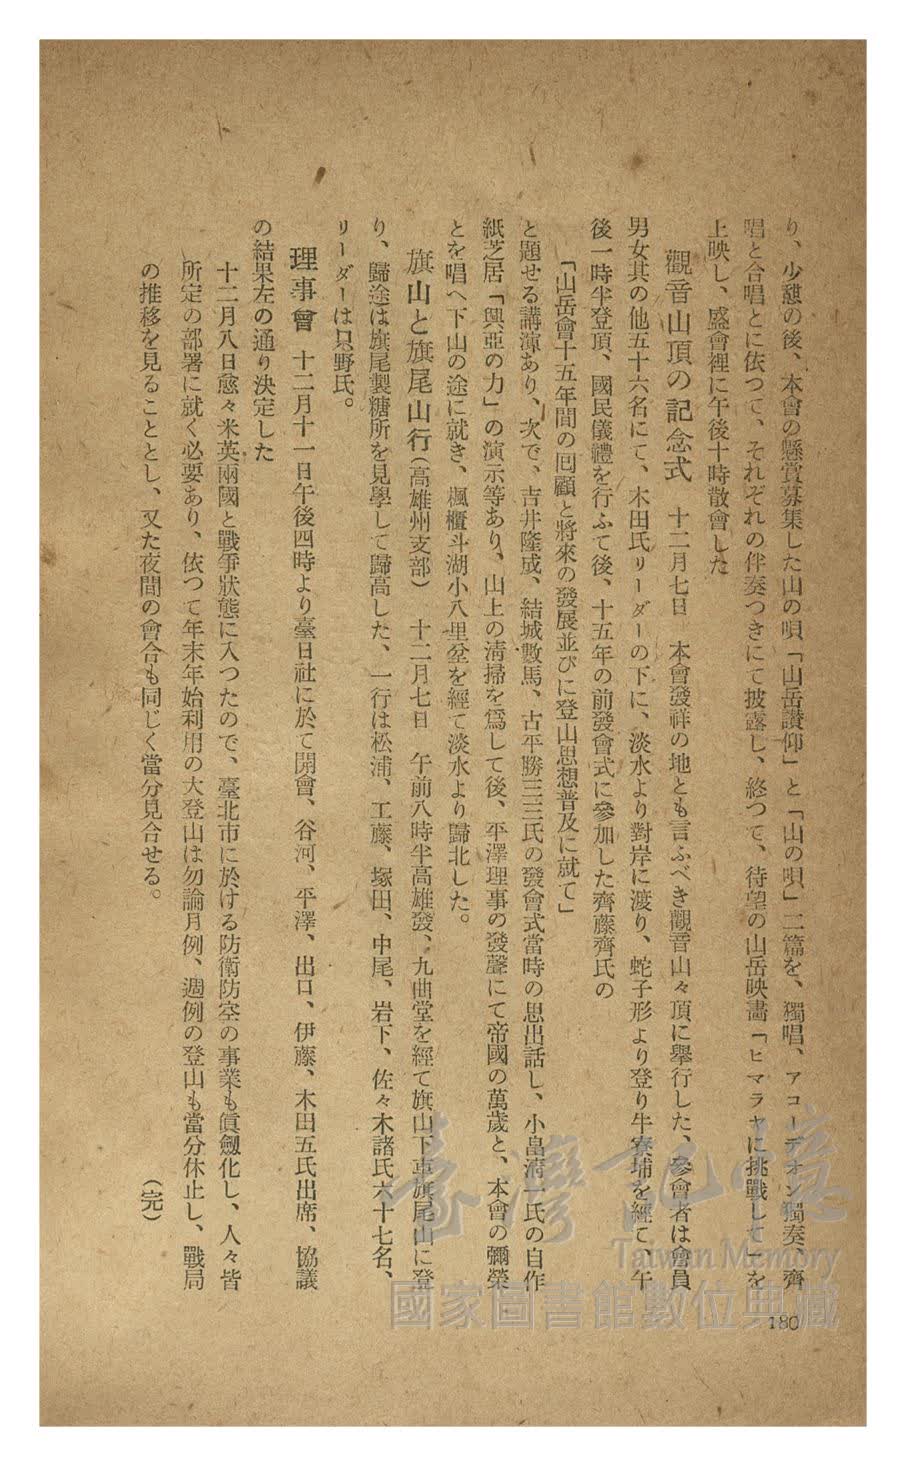 り、少憩の後、本會の懸賞募集した山の唄「山岳讃仰」と「山の唄」二篇を、獨唱、アコーデオン獨奏、齊
唱と合唱とに依つて、それぞれの伴奏つきにて披露し、終つて、待望の山岳映畵「ヒマラヤに挑戰して」を
上映し、盛會裡に午後十時散會した
觀音山頂の記念式　十二月七日　本會發祥の地とも言ふべき觀音山々頂に擧行した、參會者は會員
男女其の他五十六名にて、木田氏リーダーの下に、淡水より對岸に渡り、蛇子形より登り牛寮埔を經て、午
後一時半登頂、國民儀禮を行ふて後、十五年の前發會式に參加した齊藤齊氏の
「山岳會十五年間の回顧と將來の發展並びに登山思想普及に就て」
と題せる講演あり、次で、吉井隆成、結城數馬、古平勝三三氏の發會式當時の思出話し、小畠淸一氏の自作
紙芝居「興亞の力」の演示等あり、山上の淸掃を爲して後、平澤理事の發聲にて帝國の萬歲と、本會の彌榮
とを唱へ下山の途に就き、楓櫃斗湖小八里坌を經て淡水より歸北した。
旗山と旗尾山行(高雄州支部)　十二月七日　午前八時半高雄發、九曲堂を經て旗山下車旗尾山に登
り、歸途は旗尾製糖所を見學して歸高した、一行は松浦、工藤、塚田、中尾、岩下、佐々木諸氏六十七名、
リーダーは只野氏。
理事會　十二月十一日午後四時より臺日社に於て開會、谷河、平澤、出口、伊藤、木田五氏出席、協議
の結果左の通り決定した
十二月八日愈々米英兩國と戰爭狀態に入つたので、臺北市に於ける防衛防空の事業も眞劔化し、人々皆
所定の部署に就く必要あり、依つて年末年始利用の大登山は勿論月例、週例の登山も當分休止し、戰局
の推移を見ることとし、又た夜間の會合も同じく當分見合せる。　(完)
180
臺灣記憶
Taiwan Memory
國家圖書館數位典藏